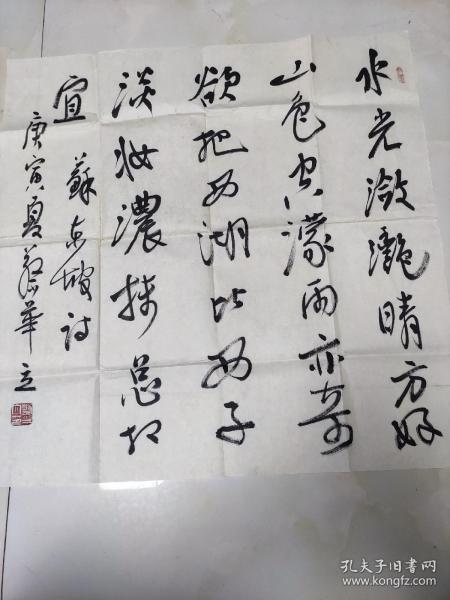 水光潋灩晴方好
山色空濛雨亦奇
欲把西湖比西子
淡妝濃抹總相
宜 蘇東坡詩
庚寅夏蔡華立
孔夫子旧书网
www.kongfz.com